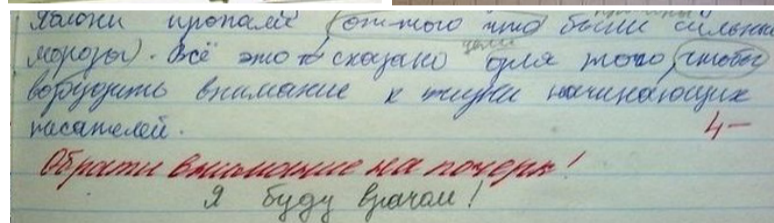 яблони пропали (от того что) были сильные
морозы). Всё это сказано для того, чтобы
возбудить внимание к жизни начинающих
писателей.
4-
Обрати внимание на почерк!
Я буду врачом!